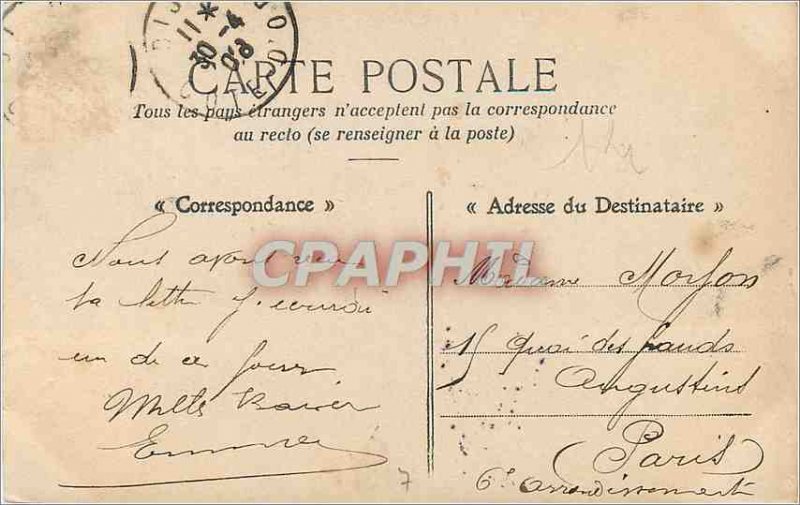 DIJON
11 *
30 -4
08
COTE D'OR
CARTE POSTALE
Tous les pays étrangers n'acceptent pas la correspondance
au recto (se renseigner à la poste)
« Correspondance »
« Adresse du Destinataire »
Nous avons
ta lettre j'
un de ces jours
Mille
CPAPHIL
Madame
15 Quai des grands
Augustins
Paris
6e arrondissement
7